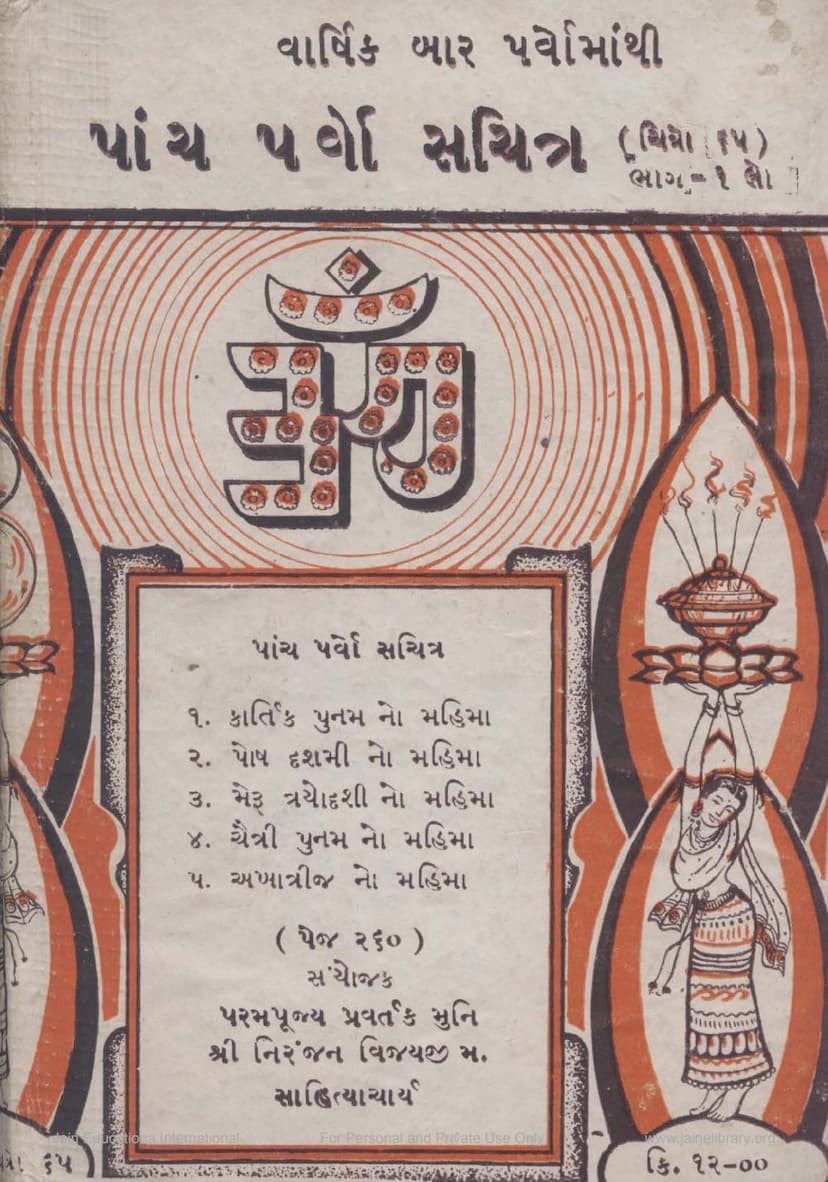 વાર્ષિક બાર પર્વોમાંથી
પાંચ પર્વો સચિત્ર (ચિત્રો ૬૫)
ભાગ-૧ લો
પાંચ પર્વો સચિત્ર
૧. કાર્તિક પુનમ નો મહિમા
૨. પોષ દશમી નો મહિમા
૩. મેરૂ ત્રયોદશી નો મહિમા
૪. ચૈત્રી પુનમ નો મહિમા
૫. અખાત્રીજ નો મહિમા
( પેજ ૨૬૦ )
સંયોજક
પરમપૂજ્ય પ્રવર્તક મુનિ
શ્રી નિરંજન વિજયજી મ.
સાહિત્યાચાર્ય
Jain Educationa International For Personal and Private Use Only www.jainelibrary.org
૬૫
કિ. ૧૨-૦૦